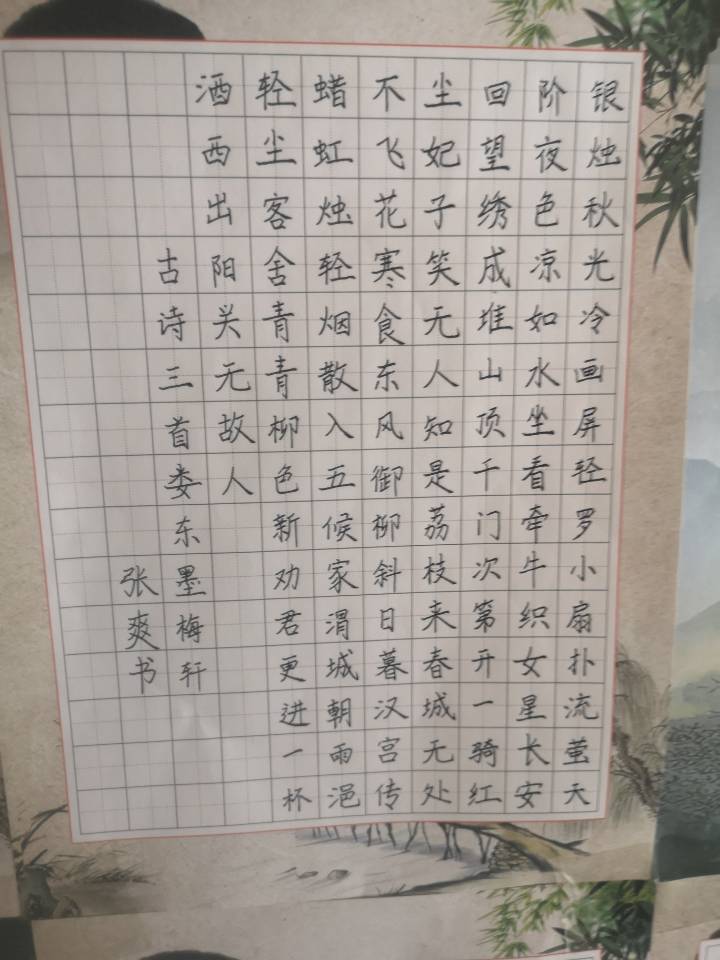 银烛秋光冷画屏轻罗小扇扑流萤天
阶夜色凉如水坐看牵牛织女星长安
回望绣成堆山顶千门次第开一骑红
尘妃子笑无人知是荔枝来春城无处
不飞花寒食东风御柳斜日暮汉宫传
蜡虹烛轻烟散入五候家渭城朝雨浥
轻尘客舍青青柳色新劝君更进一杯
酒西出阳关无故人
古诗三首娄东墨梅轩
张爽书